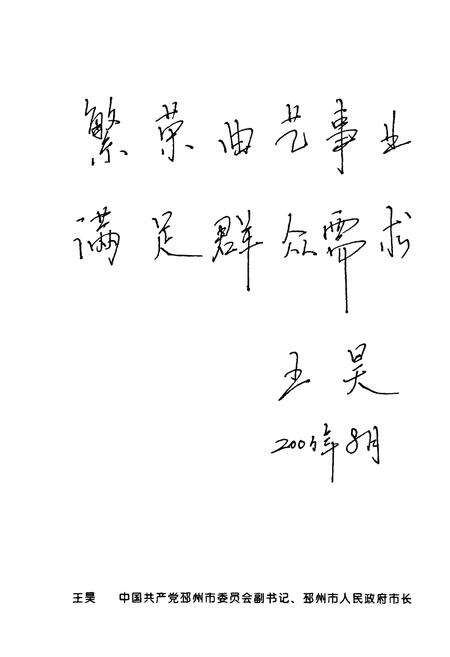 繁荣曲艺事业
满足群众需求
王昊
年8月
王昊 中国共产党邳州市委员会副书记、邳州市人民政府市长